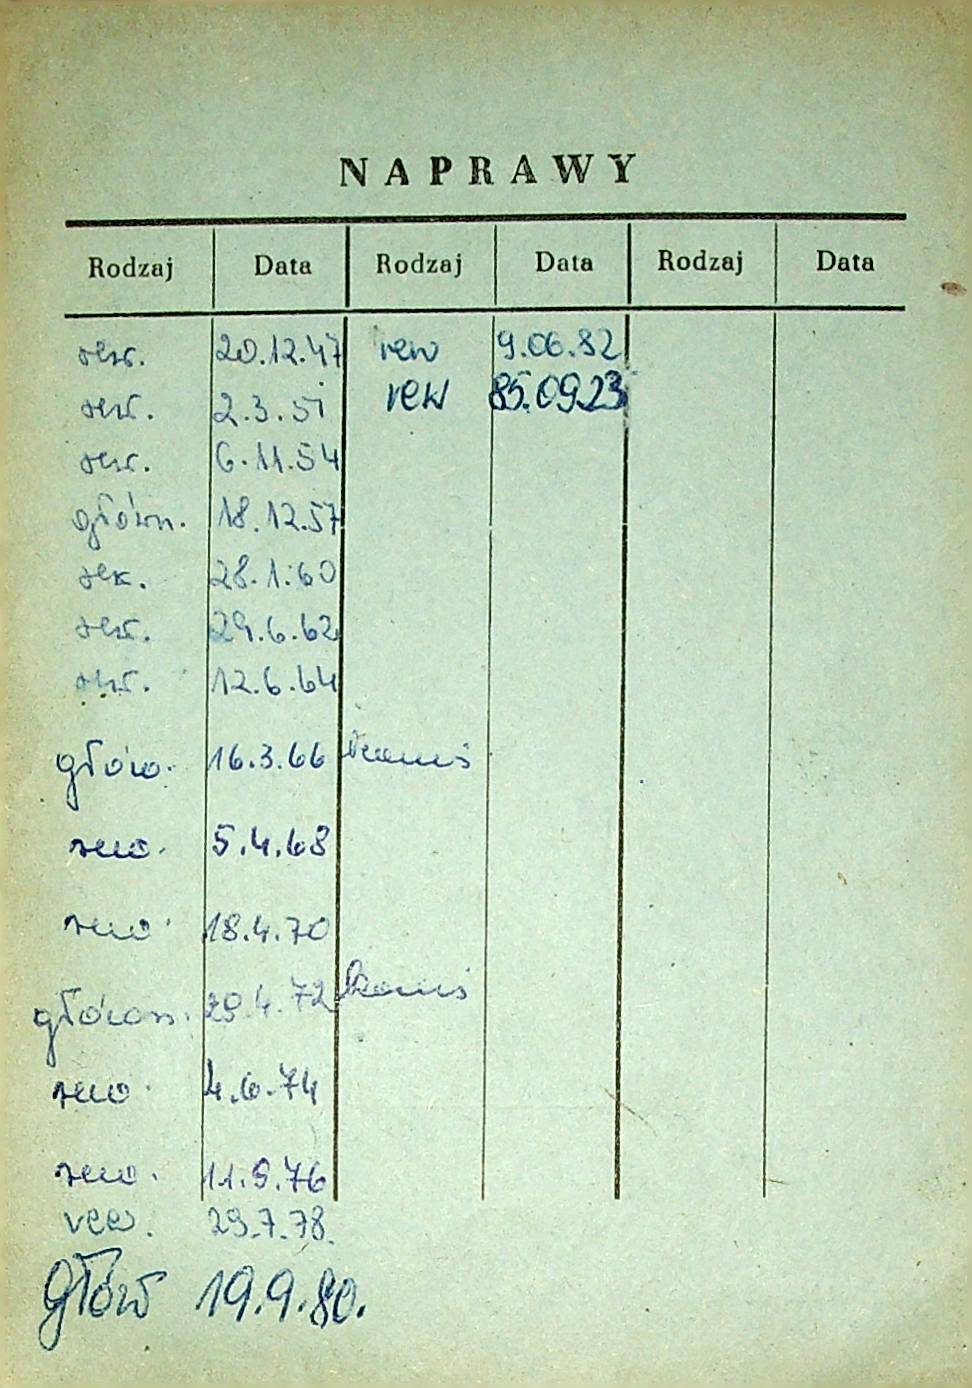 NAPRAWY
Rodzaj Data Rodzaj Data Rodzaj Data
rew. 20.12.47 rew 9.06.82
rew. 2.3.51 rew 85.09.23
rew. 6.11.54
główn. 18.12.57
rew. 28.1.60
rew. 29.6.62
rew. 12.6.64
głów. 16.3.66
rew. 5.4.68
rew. 18.4.70
główn. 29.4.72
rew. 4.6.74
rew. 11.9.76
rew. 29.7.78.
głów 19.9.80.